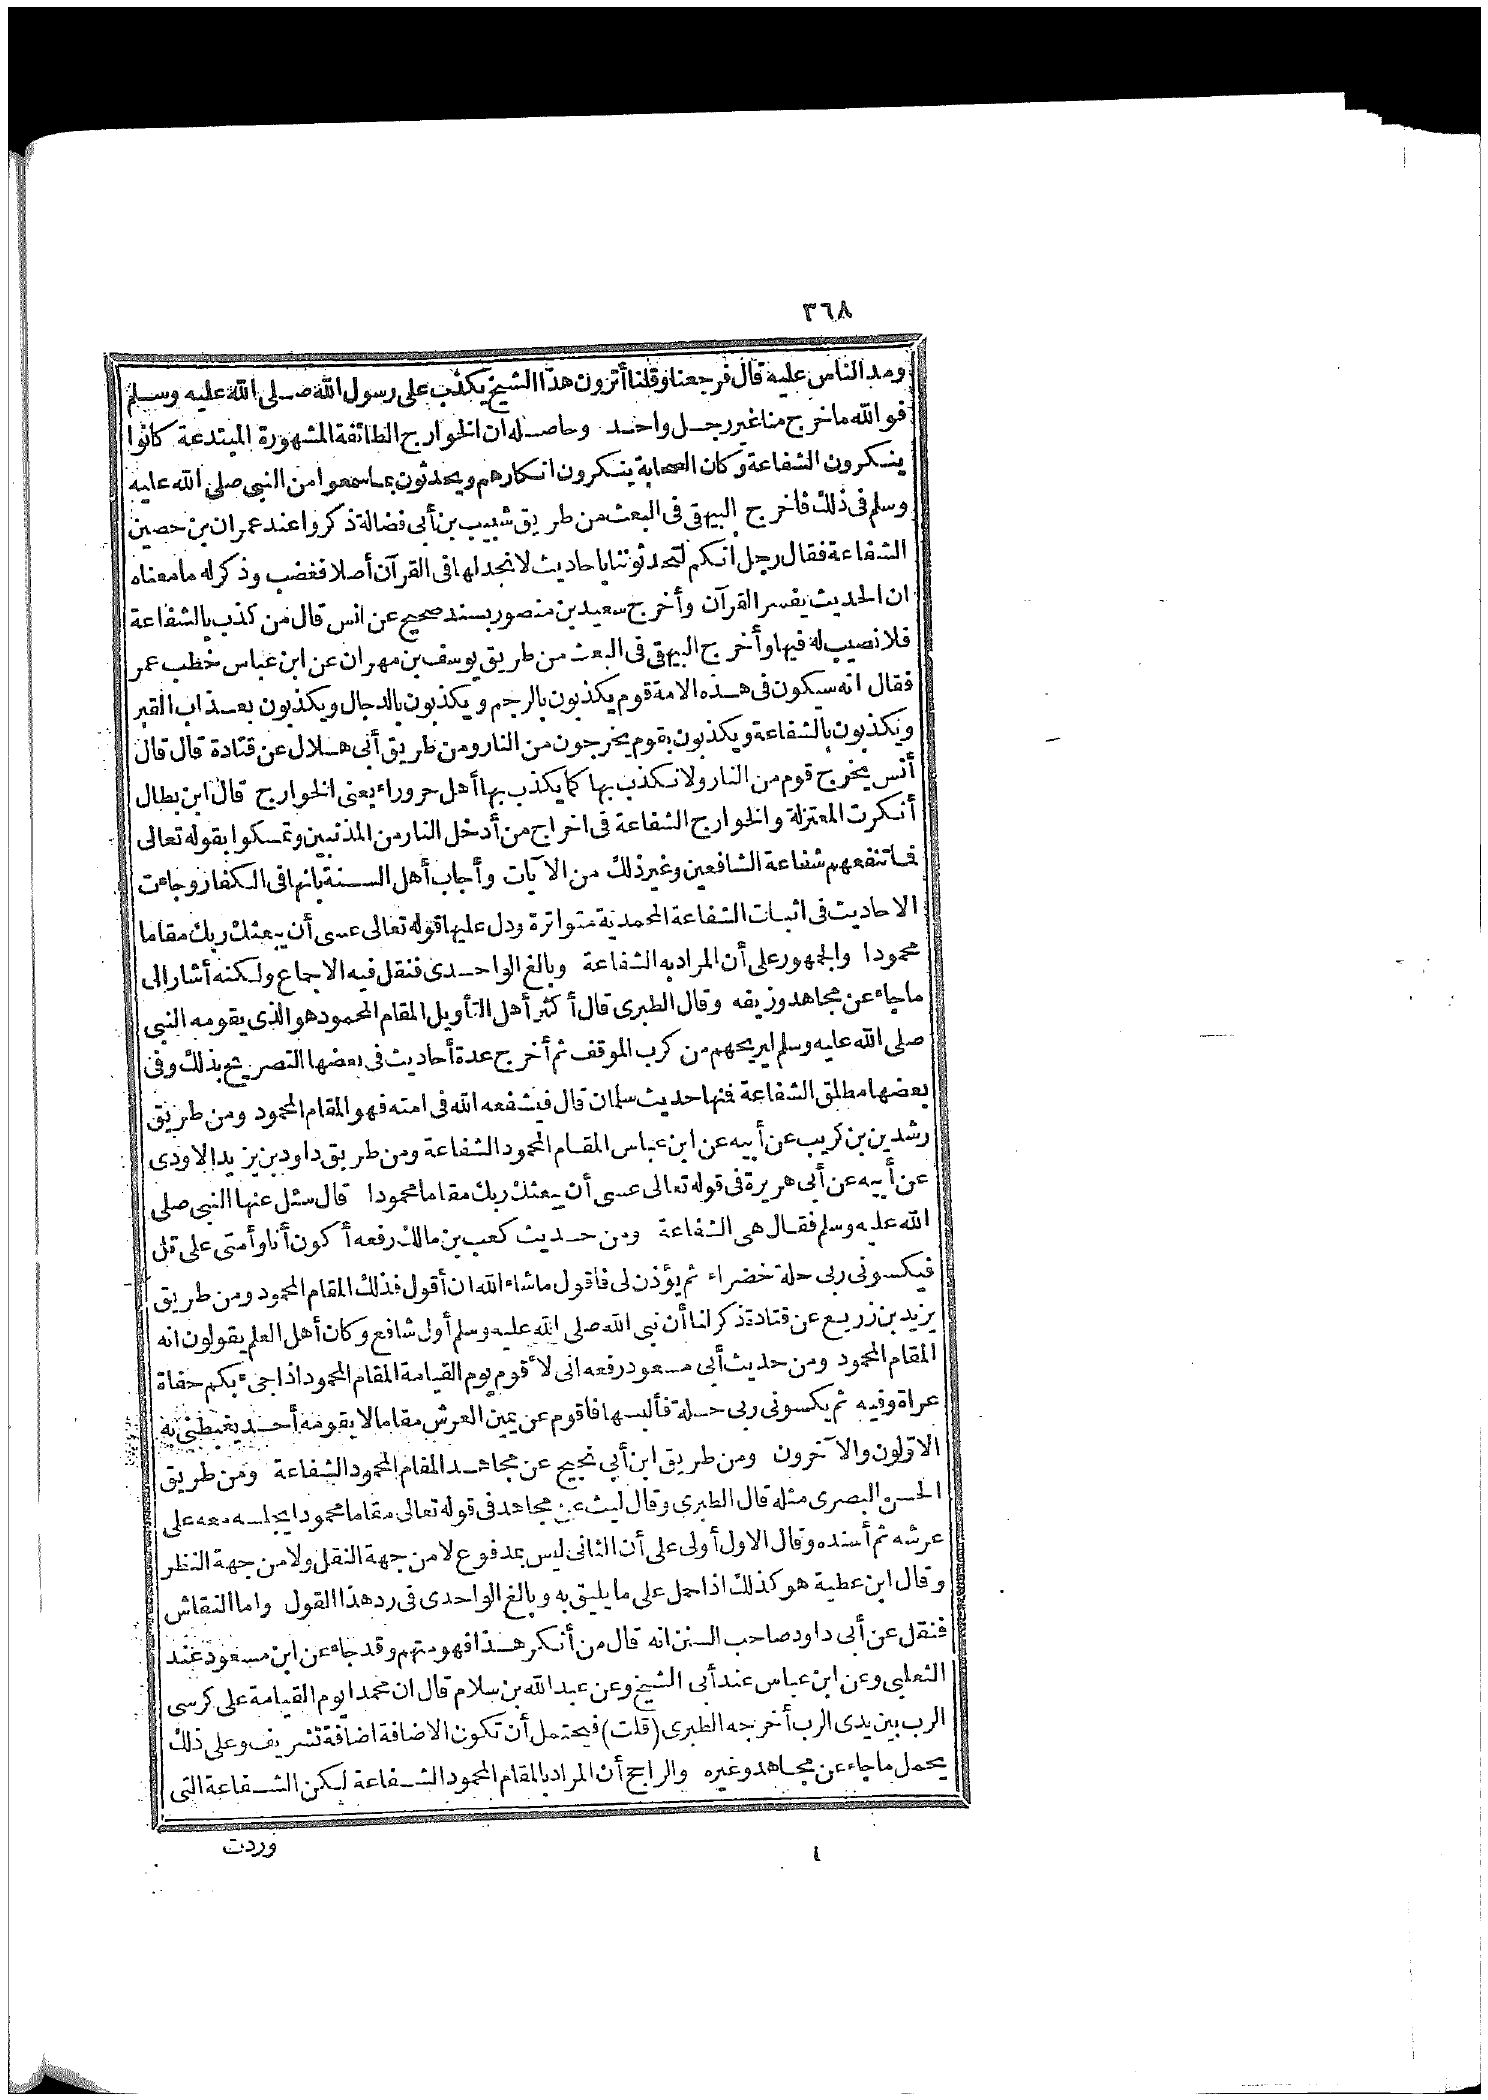 ٣٦٨
ومد الناس عليه قال فرجعنا وقلنا أترون هذا الشيخ يكذب على رسول الله صلى الله عليه وسلم
فو الله ما خرج منا غير رجل واحد وحاصله ان الخوارج الطائفة المشهورة المبتدعة كانوا
ينكرون الشفاعة وكان الصحابة ينكرون انكارهم ويحدثون بما سمعوا من النبى صلى الله عليه
وسلم فى ذلك فاخرج البيهقى فى البعث من طريق شبيب بن أبى فضالة ذكروا عند عمران بن حصين
الشفاعة فقال رجل انكم لتحدثوننا باحاديث لا نجد لها فى القرآن أصلا فغضب وذكر له ما معناه
ان الحديث يفسر القرآن وأخرج سعيد بن منصور بسند صحيح عن انس قال من كذب بالشفاعة
فلا نصيب له فيها وأخرج البيهقى فى البعث من طريق يوسف بن مهران عن ابن عباس خطب عمر
فقال انه سيكون فى هذه الامة قوم يكذبون بالرجم ويكذبون بالدجال ويكذبون بعذاب القبر
ويكذبون بالشفاعة ويكذبون بقوم يخرجون من النار ومن طريق أبى هلال عن قتادة قال قال
أنس يخرج قوم من النار ولا نكذب بها كما يكذب بها أهل حروراء يعنى الخوارج قال ابن بطال
أنكرت المعتزلة والخوارج الشفاعة فى اخراج من أدخل النار من المذنبين وتمسكوا بقوله تعالى
فما تنفعهم شفاعة الشافعين وغير ذلك من الآيات وأجاب أهل السنة بانها فى الكفار وجاءت
الاحاديث فى اثبات الشفاعة المحمدية متواترة ودل عليها قوله تعالى عسى أن يبعثك ربك مقاما
محمودا والجمهور على أن المراد به الشفاعة وبالغ الواحدى فنقل فيه الاجماع ولكنه أشار الى
ما جاء عن مجاهد وزيفه وقال الطبرى قال أكثر أهل التأويل المقام المحمود هو الذى يقومه النبى
صلى الله عليه وسلم ليريحهم من كرب الموقف ثم أخرج عدة أحاديث فى بعضها التصريح بذلك وفى
بعضها مطلق الشفاعة فمنها حديث سلمان قال فيشفعه الله فى امته فهو المقام المحمود ومن طريق
رشدين بن كريب عن أبيه عن ابن عباس المقام المحمود الشفاعة ومن طريق داود بن يزيد الاودى
عن أبيه عن أبى هريرة فى قوله تعالى عسى أن يبعثك ربك مقاما محمودا قال سئل عنها النبى صلى
الله عليه وسلم فقال هى الشفاعة ومن حديث كعب بن مالك رفعه أكون أنا وأمتى على تل
فيكسونى ربى حلة خضراء ثم يؤذن لى فاقول ما شاء الله ان أقول فذلك المقام المحمود ومن طريق
يزيد بن زريع عن قتادة ذكر لنا أن نبى الله صلى الله عليه وسلم أول شافع وكان أهل العلم يقولون انه
المقام المحمود ومن حديث أبى مسعود رفعه انى لأقوم يوم القيامة المقام المحمود اذا جىء بكم حفاة
عراة وفيه ثم يكسونى ربى حلة فألبسها فاقوم عن يمين العرش مقاما لا يقومه أحد يغبطنى به
الاولون والآخرون ومن طريق ابن أبى نجيح عن مجاهد المقام المحمود الشفاعة ومن طريق
الحسن البصرى مثله قال الطبرى وقال ليث عن مجاهد فى قوله تعالى مقاما محمودا يجلسه معه على
عرشه ثم أسنده وقال الاول أولى على أن الثانى ليس بمدفوع لا من جهة النقل ولا من جهة النظر
وقال ابن عطية هو كذلك اذا حمل على ما يليق به وبالغ الواحدى فى رد هذا القول واما النقاش
فنقل عن أبى داود صاحب السنن انه قال من أنكر هذا فهو متهم وقد جاء عن ابن مسعود عند
الثعلبى وعن ابن عباس عند أبى الشيخ وعن عبد الله بن سلام قال ان محمدا يوم القيامة على كرسى
الرب بين يدى الرب أخرجه الطبرى (قلت) فيحتمل أن تكون الاضافة اضافة تشريف وعلى ذلك
يحمل ما جاء عن مجاهد وغيره والراجح أن المراد بالمقام المحمود الشفاعة لكن الشفاعة التى
وردت